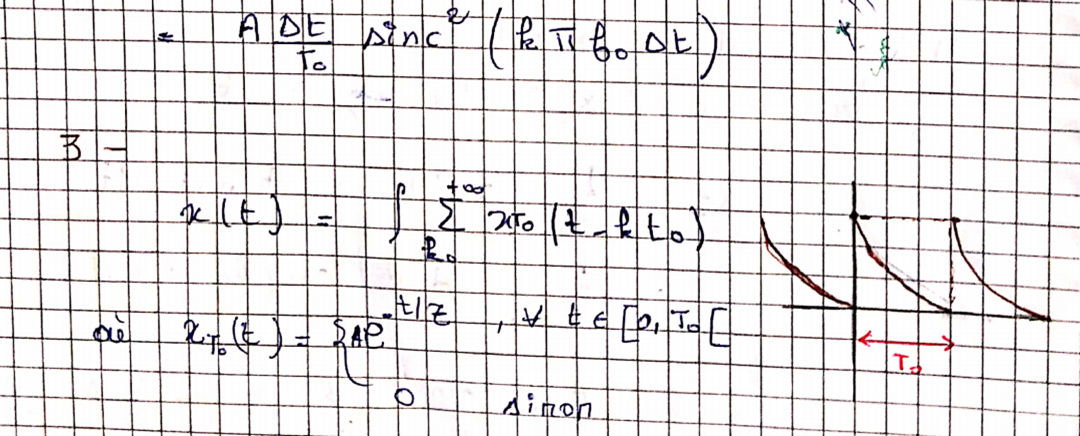 = A Δt/T₀ sinc² (k π f₀ Δt)
3 -
x(t) = ∫ Σ_{k₀}^{+∞} x_{T₀} (t - k t₀)
où x_{T₀}(t) = { A e^{-t/τ} , ∀ t ∈ [0, T₀[
0 sinon
T₀